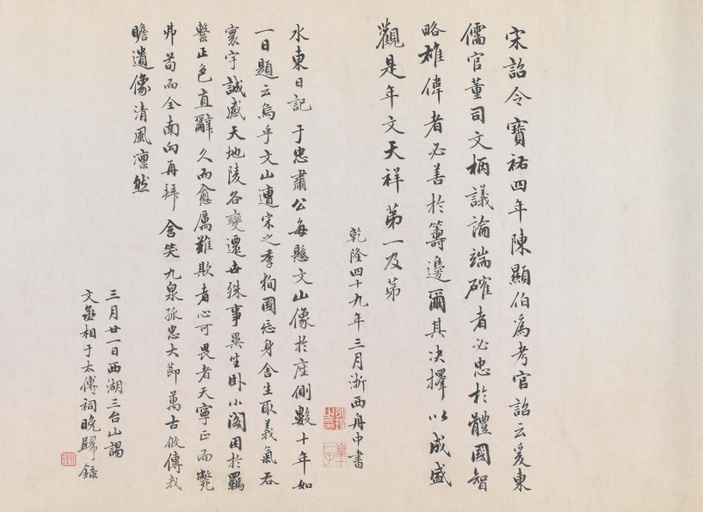 宋詔令寶祐四年陳顯伯為考官詔云爰東
儒官董司文柄議論端確者必忠於體國智
略雄偉者必善於籌邊爾其決擇以成盛
觀是年文天祥第一及第
乾隆四十九年三月浙西舟中書
水東日記于忠肅公每懸文山像於座側數十年如
一日題云烏乎文山遭宋之季殉國忘身舍生取義氣吞
寰宇誠感天地陵谷變遷世殊事異坐卧小閣困於羈
繫正色直辭久而愈厲難欺者心可畏者天寧正而斃
弗苟而全南向再拜含笑九泉孤忠大節萬古攸傳我
瞻遺像清風凛然
三月廿一日西湖三台山謁
文丞相于太傅祠晚歸錄